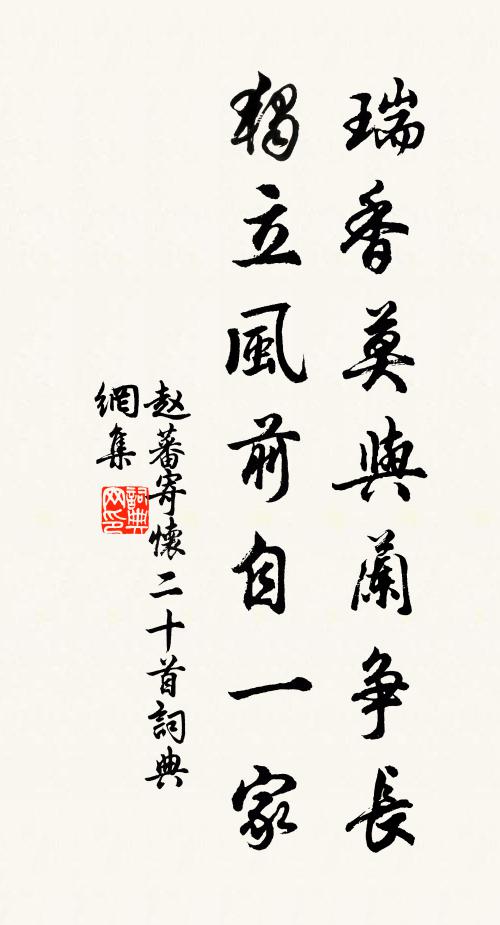 瑞香莫與蘭争長
獨立風前自一家
赵蕃寄懷二十首詞典
網集
詞典网印